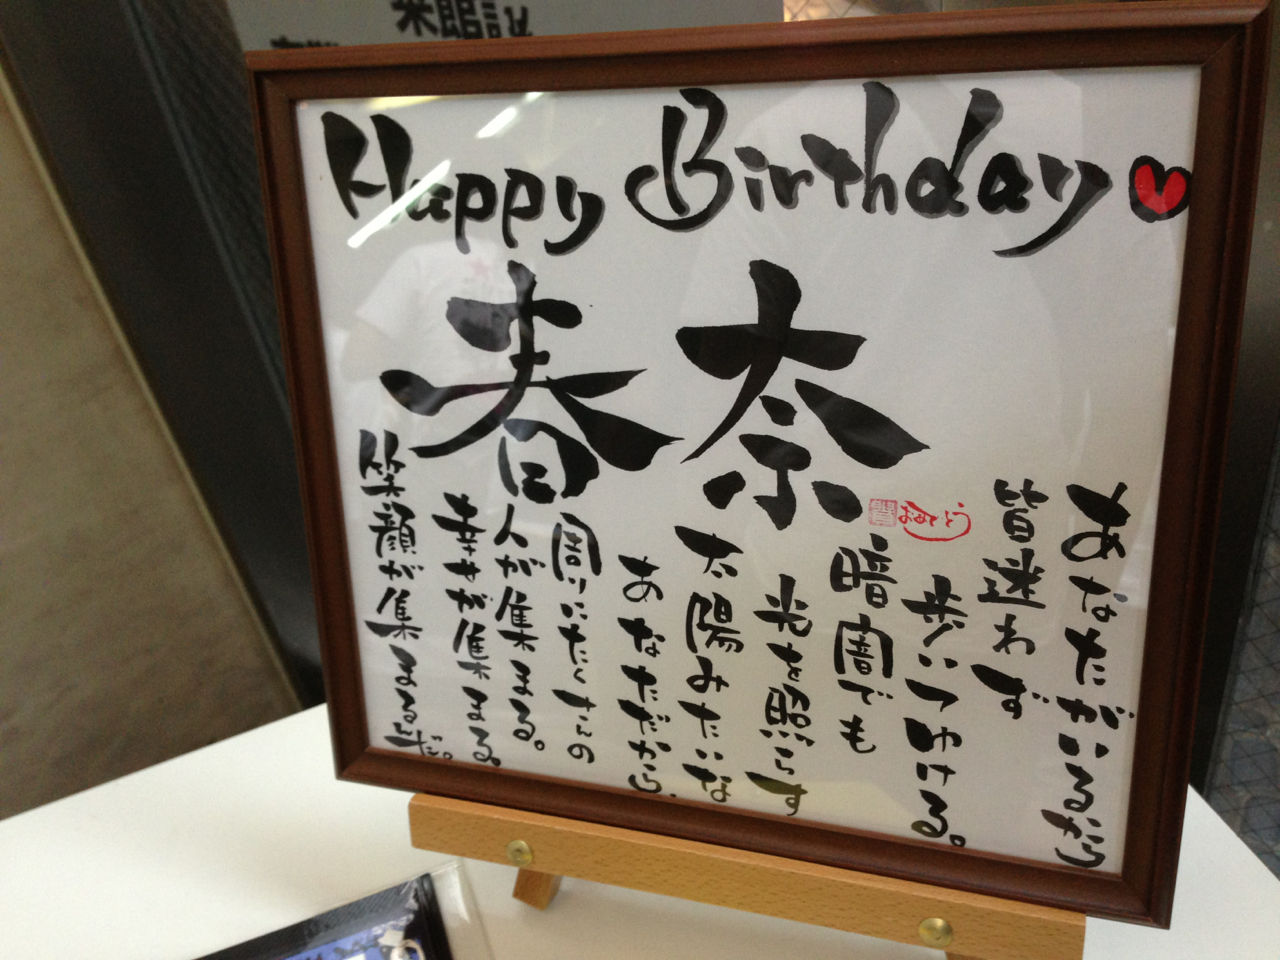 来館記
Happy Birthday
春奈
あなたがいるから
皆迷わず
歩いつゆける。
暗闇でも
光を照らす
太陽みたいな
あなただから、
周りにたくさんの
人が集まる。
幸せが集まる。
笑顔が集まるんだ。